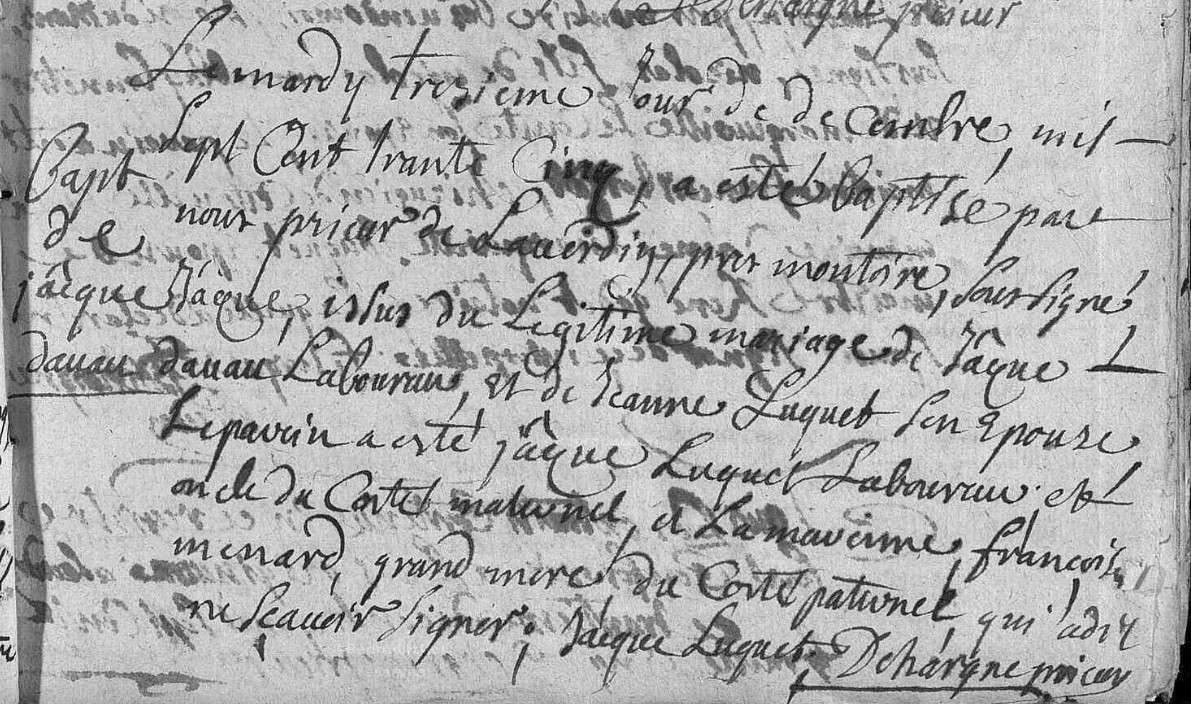 Dehargne prieur
Le mardy trezieme Jour de decembre, mil
Sept Cent trante Cinq, a esté baptisé par
nous prieur de Lauerdin, pres montoire, soussigné
Bapt
de
jâcque
dauau
Jâque, issus du Legitime mariage de Jâque
dauau Laboureur, et de Jeanne Luquet son Epouze
Le parein a esté jâque Luquet Laboureur et
oncle du Costé maternel, et La mareinne, françoise
menard, grand mere du Costé paternel, qui a dit
ne Scauoir signer; Jâcque Luquet Dehargne prieur